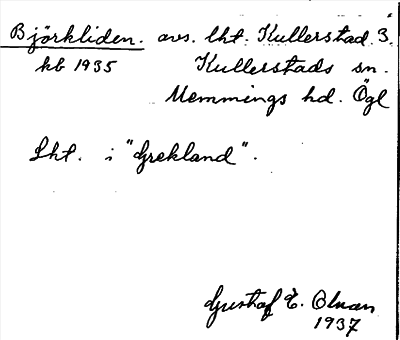 Björkliden. avs. lht. Kullerstad 3.
kb 1935 Kullerstads sn.
Memmings hd. Ögl
Lht. i "Grekland".
Gustaf E. Olman
1937